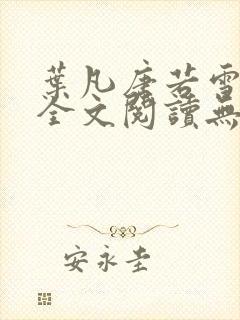 葉凡唐若雪
全文閱讀無
安永圭